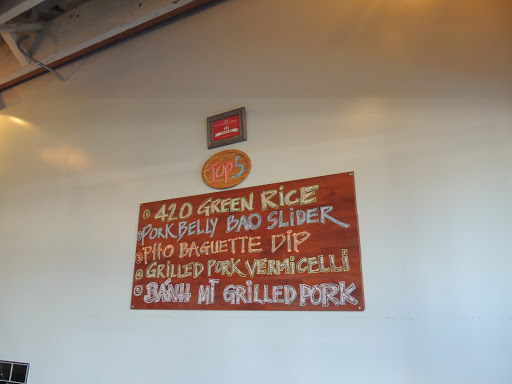 Top 5
① 420 GREEN RICE
② PORK BELLY BAO SLIDER
③ PHO BAGUETTE DIP
④ GRILLED PORK VERMICELLI
⑤ BÁNH MÌ GRILLED PORK